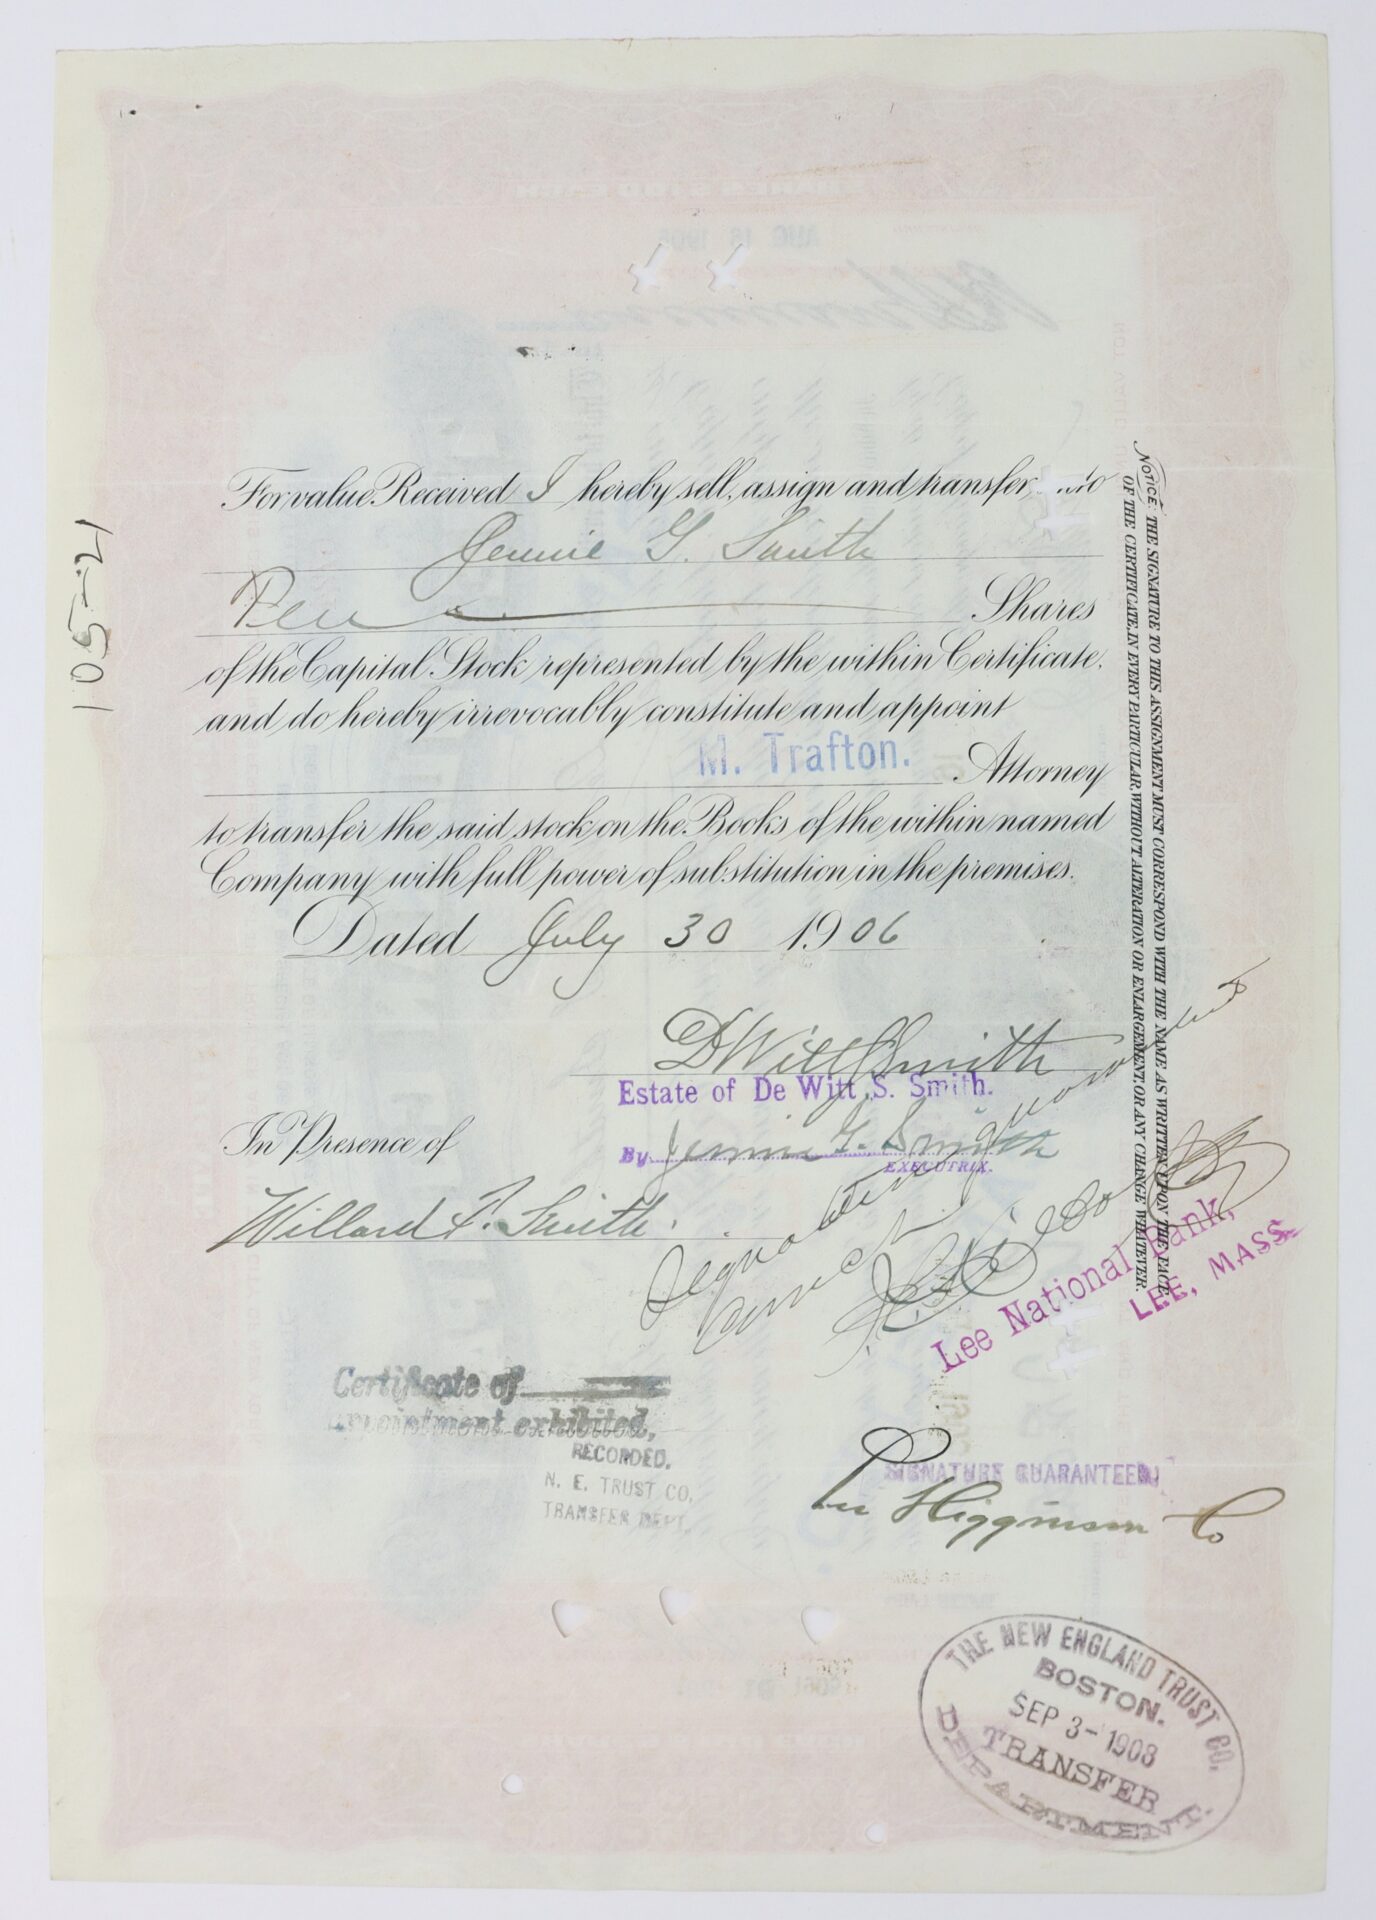 For value Received I hereby sell, assign and transfer unto
Jennie G. Smith
Ten Shares
of the Capital Stock represented by the within Certificate,
and do hereby irrevocably constitute and appoint
M. Trafton.
Attorney
to transfer the said stock on the Books of the within named
Company with full power of substitution in the premises.
Dated July 30 1906
DWitt S Smith
Estate of De Witt S. Smith.
In Presence of
By Jennie G. Smith
EXECUTRIX.
Willard F. Smith.
Signature guaranteed
correct
Lee National Bank,
LEE, MASS.
Certificate of
appointment exhibited,
RECORDED.
N. E. TRUST CO.
TRANSFER DEPT.
SIGNATURE GUARANTEED
Lee Higginson Co
THE NEW ENGLAND TRUST CO.
BOSTON.
SEP 3-1908
TRANSFER
DEPARTMENT
NOTICE: THE SIGNATURE TO THIS ASSIGNMENT MUST CORRESPOND WITH THE NAME AS WRITTEN UPON THE FACE
OF THE CERTIFICATE, IN EVERY PARTICULAR WITHOUT ALTERATION OR ENLARGEMENT, OR ANY CHANGE WHATEVER.
105-21
AUG 16 1906